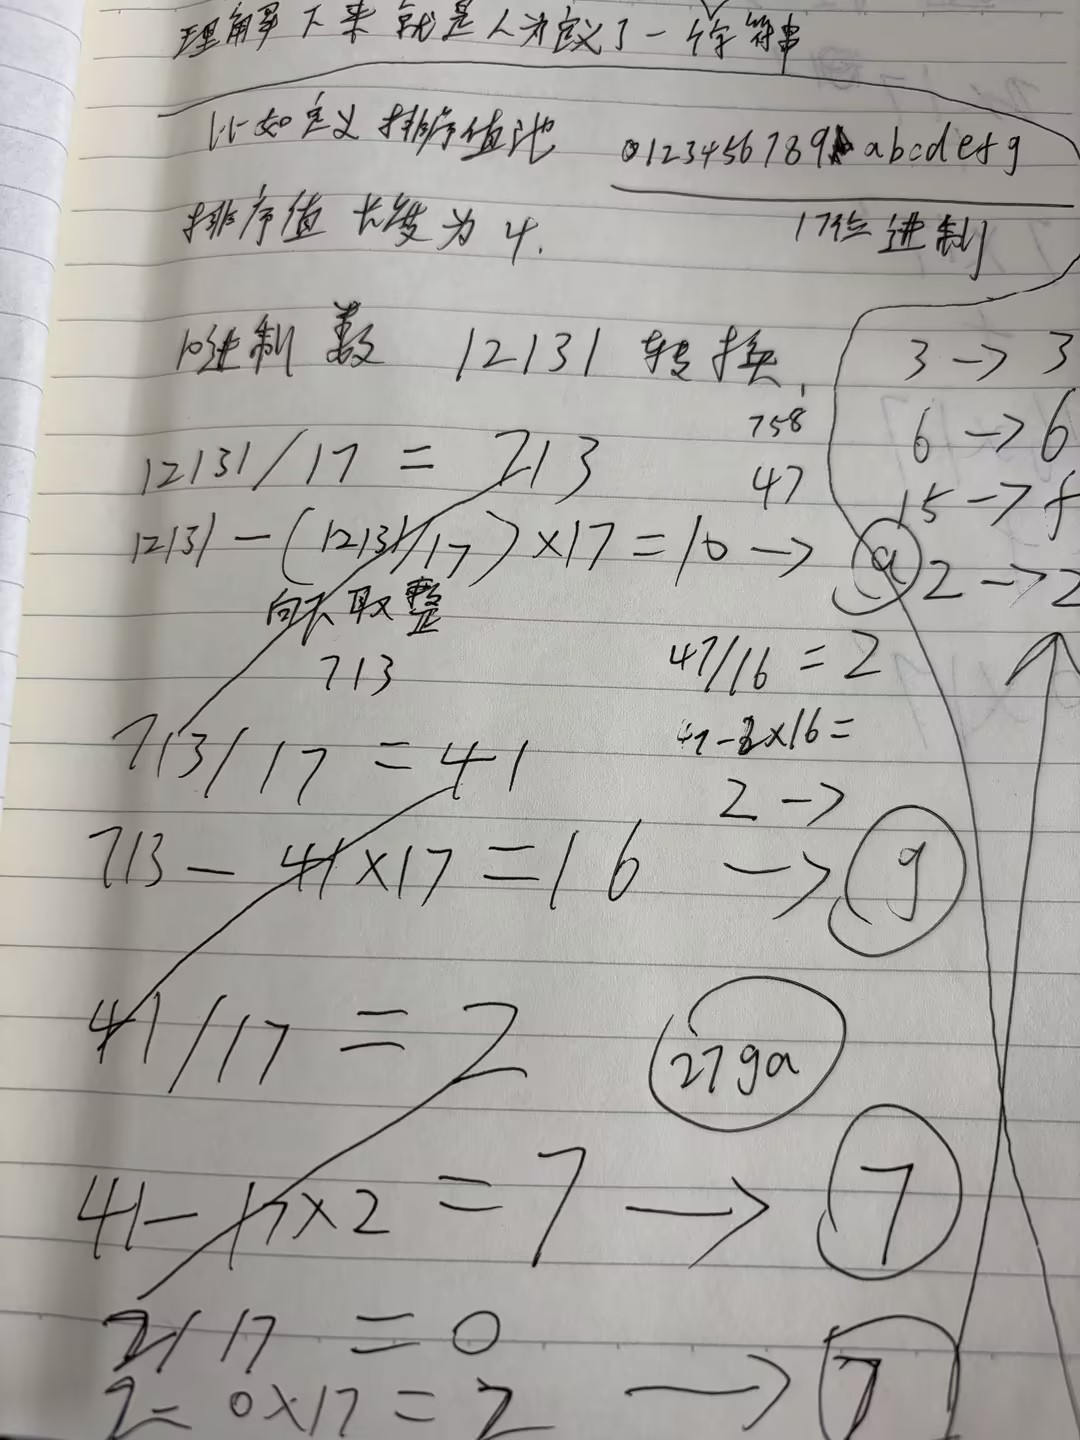 理解下来就是人为定义了一个字符串
比如定义排序值池 0123456789 abcdefg
排序值长度为4. 17位进制
10进制数 12131 转换,
3 -> 3
758
6 -> 6
12131/17 = 713
47
15 -> f
12131-(12131/17)×17=10 -> a
2 -> 2
向下取整
713
47/16 = 2
713/17 = 41
47-2×16=
2 ->
713- 41×17=16 -> g
41/17 = 2
27ga
41-17×2 = 7 -> 7
2/17 = 0
2-0×17=2 -> 2